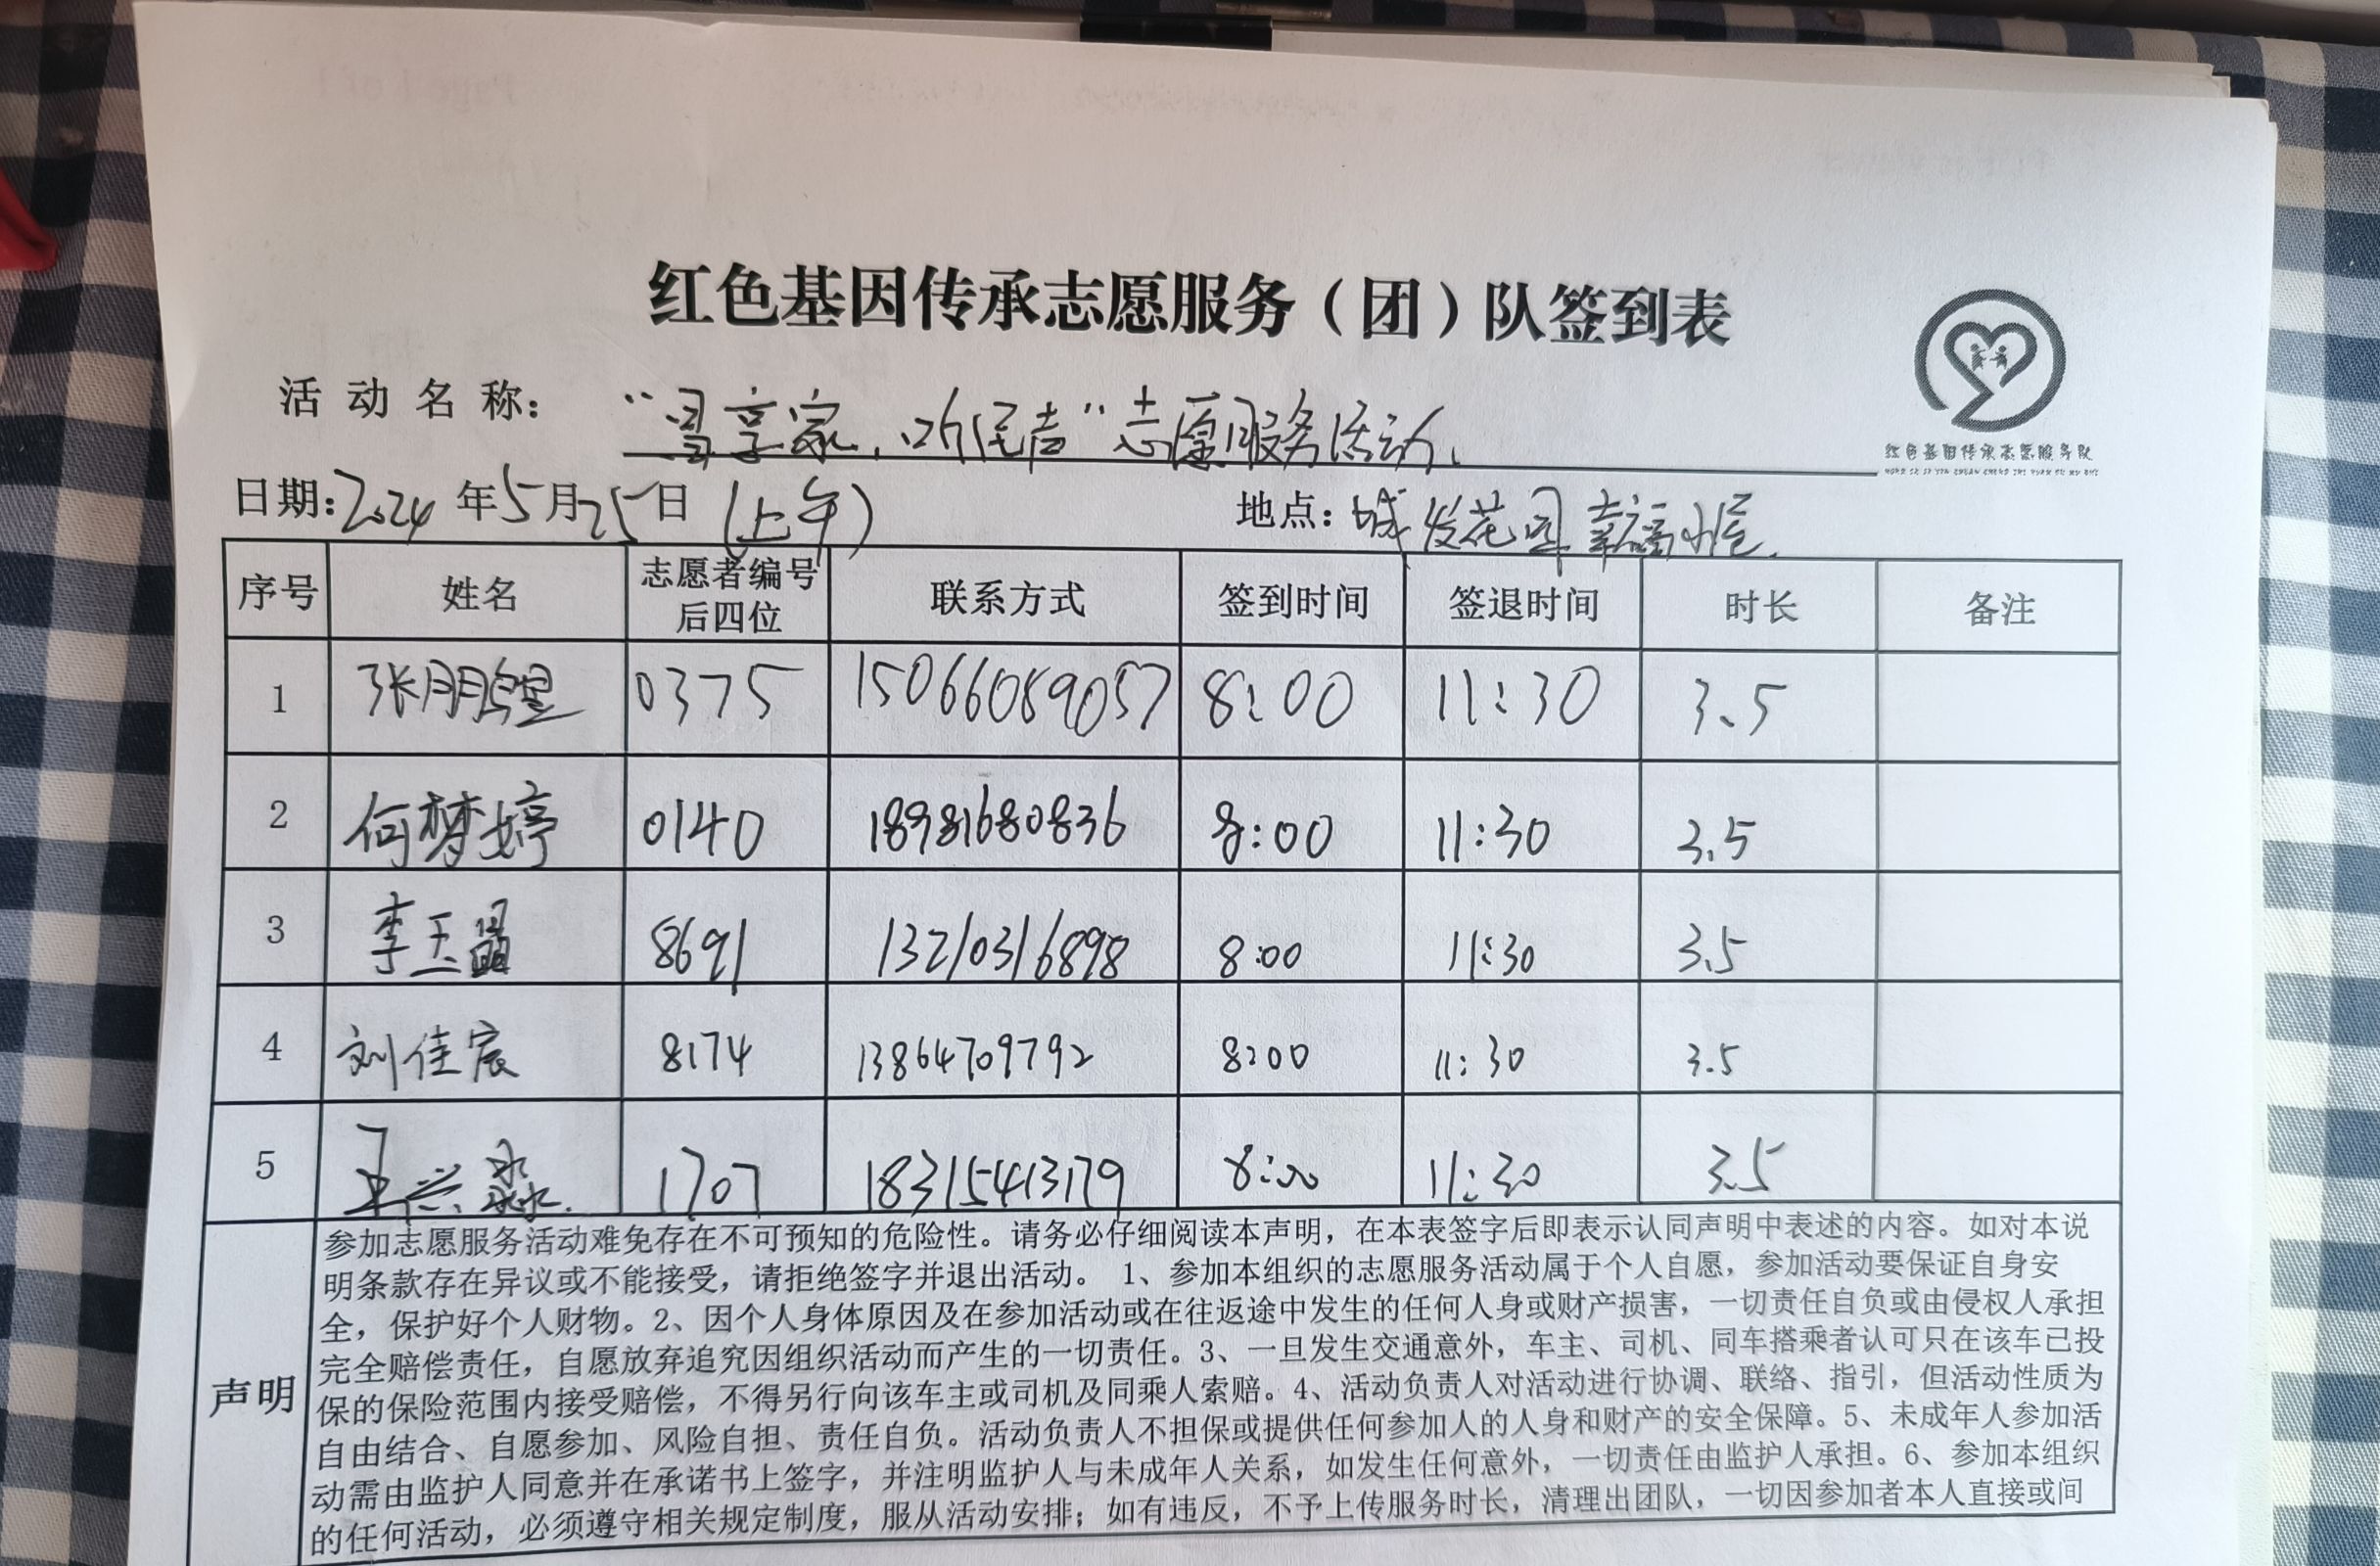 红色基因传承志愿服务（团）队签到表
活动名称：“寻享家，听民声”志愿服务活动.
红色基因传承志愿服务队
HONG SE JI YIN CHUAN CHENG ZHI YUAN FU WU DUI
日期：2024年5月25日（上午） 地点：城发花园幸福小屋.
序号 姓名 志愿者编号后四位 联系方式 签到时间 签退时间 时长 备注
1 张朋 0375 15066089057 8:00 11:30 3.5
2 何梦婷 0140 18981680836 8:00 11:30 3.5
3 李玉晶 8691 13210316898 8:00 11:30 3.5
4 刘佳宸 8174 13864709792 8:00 11:30 3.5
5 王兴淼 1707 18315413179 8:00 11:30 3.5
声明
参加志愿服务活动难免存在不可预知的危险性。请务必仔细阅读本声明，在本表签字后即表示认同声明中表述的内容。如对本说
明条款存在异议或不能接受，请拒绝签字并退出活动。 1、参加本组织的志愿服务活动属于个人自愿，参加活动要保证自身安
全，保护好个人财物。2、因个人身体原因及在参加活动或在往返途中发生的任何人身或财产损害，一切责任自负或由侵权人承担
完全赔偿责任，自愿放弃追究因组织活动而产生的一切责任。3、一旦发生交通意外，车主、司机、同车搭乘者认可只在该车已投
保的保险范围内接受赔偿，不得另行向该车主或司机及同乘人索赔。4、活动负责人对活动进行协调、联络、指引，但活动性质为
自由结合、自愿参加、风险自担、责任自负。活动负责人不担保或提供任何参加人的人身和财产的安全保障。5、未成年人参加活
动需由监护人同意并在承诺书上签字，并注明监护人与未成年人关系，如发生任何意外，一切责任由监护人承担。6、参加本组织
的任何活动，必须遵守相关规定制度，服从活动安排；如有违反，不予上传服务时长，清理出团队，一切因参加者本人直接或间